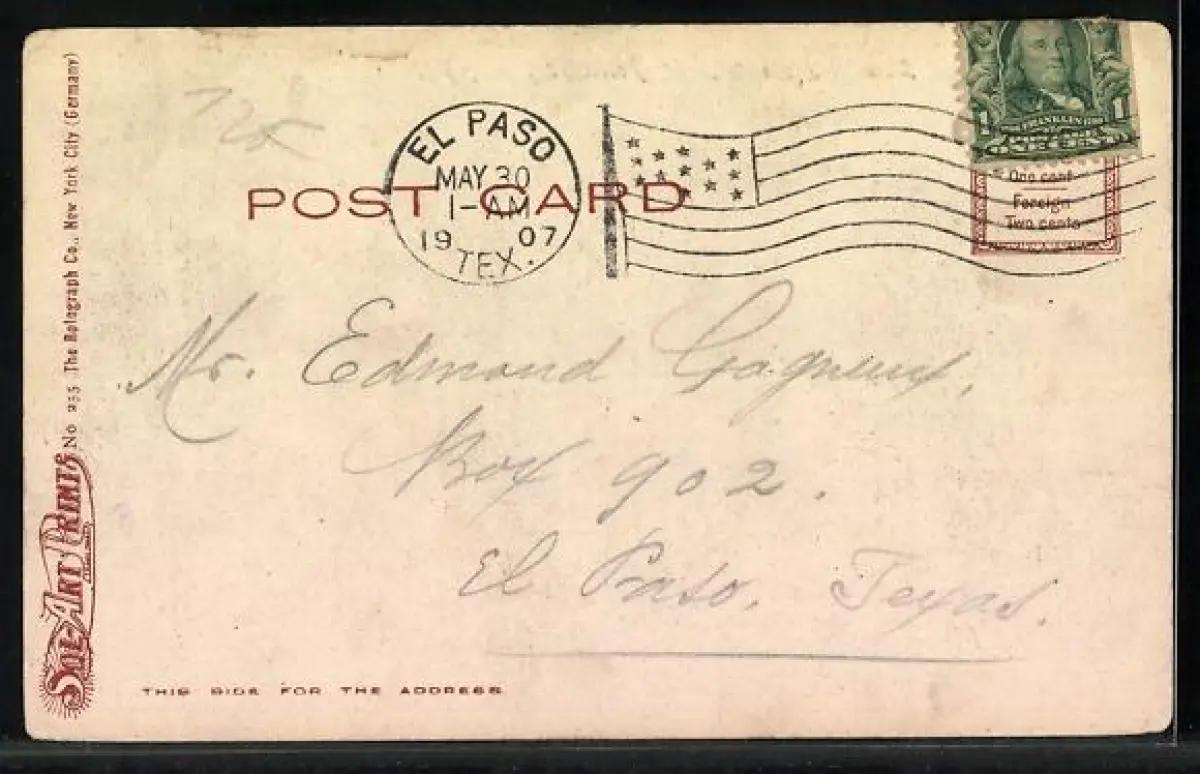 No 233 The Rotograph Co., New York City (Germany)
SOL-ART PRINTS
EL PASO
MAY 30
1-AM
1907
TEX.
POST CARD
1
FRANKLIN
1
ONE CENT
One cent
Foreign
Two cents
Mr. Edmond Gagneux,
Box 902.
El Paso, Texas.
THIS SIDE FOR THE ADDRESS.